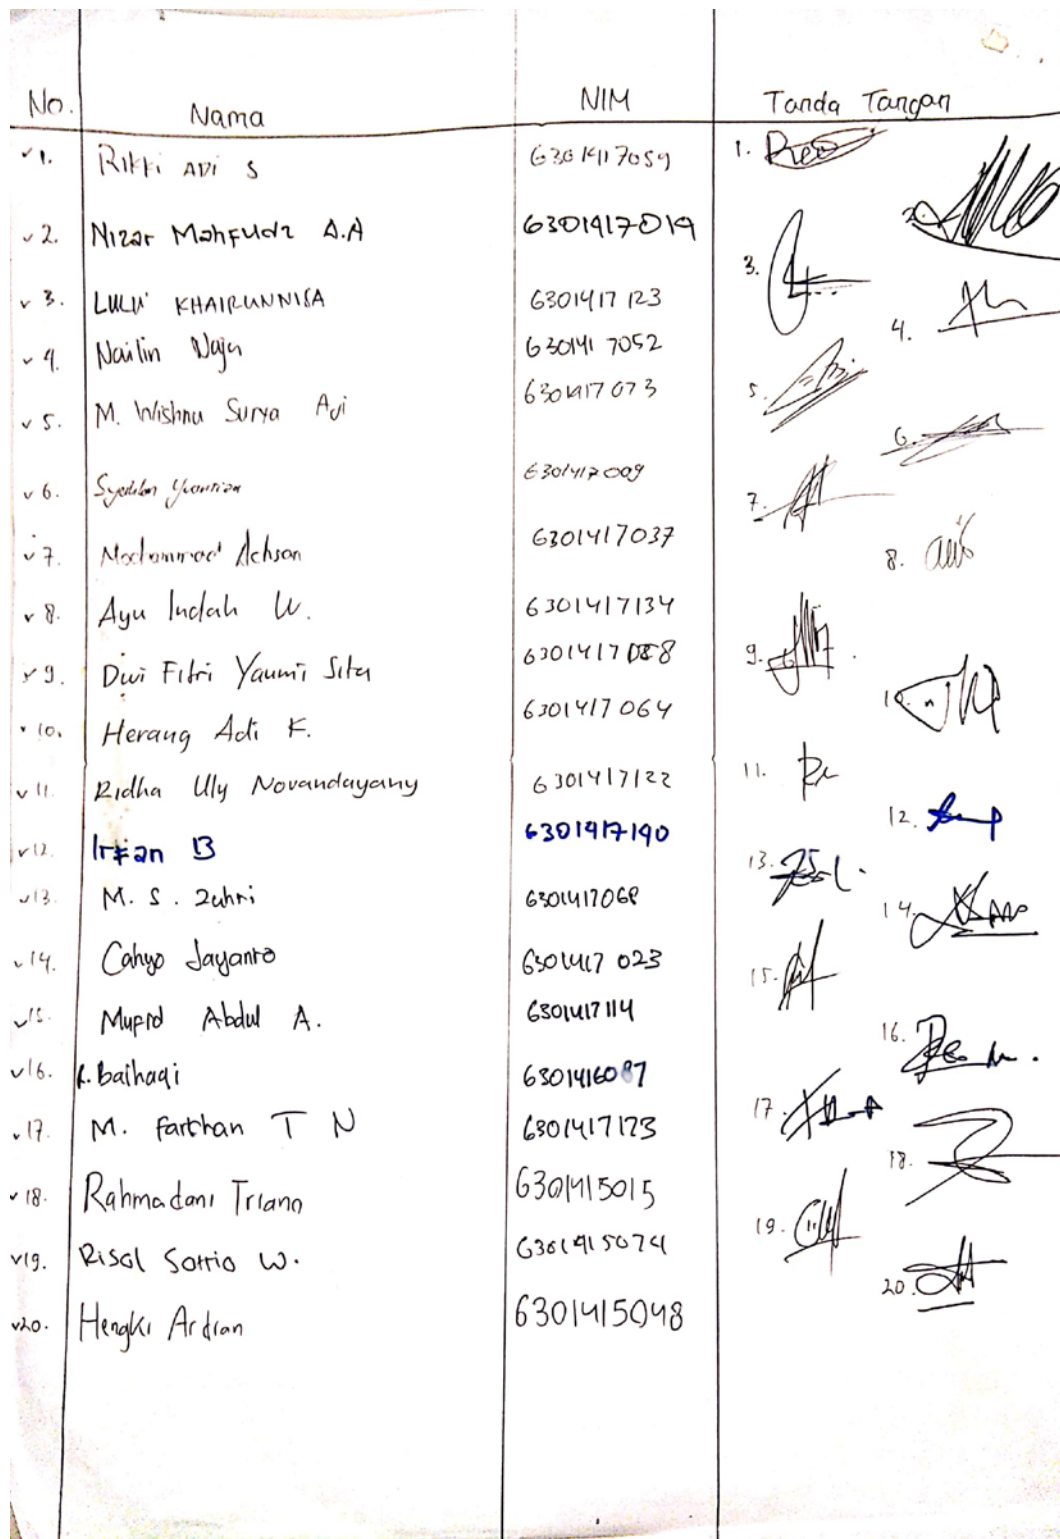 No. Nama NIM Tanda Tangan
1. Rikki ADI S 6301417059 1.
2. Nizar Mahfudz A.A 6301417019 2.
3. LULU' KHAIRUNNISA 6301417123 3.
4. Nailin Naja 6301417052 4.
5. M. Wishnu Surya Aji 6301417073 5.
6. 6301417009 6.
7. Mochammad Achsan 6301417037 7.
8. Ayu Indah W. 6301417134 8.
9. Dwi Fitri Yaumi Sita 6301417088 9.
10. Herang Adi K. 6301417064 10.
11. Ridha Uly Novandayany 6301417122 11.
12. Irfan B 6301417140 12.
13. M. S. Zuhri 6301417068 13.
14. Cahyo Jayanto 6301417023 14.
15. Mufid Abdul A. 6301417114 15.
16. A. Baihaqi 6301416087 16.
17. M. Farkhan T N 6301417173 17.
18. Rahmadani Triano 6301415015 18.
19. Risal Satrio W. 6301415074 19.
20. Hengki Ardian 6301415048 20.